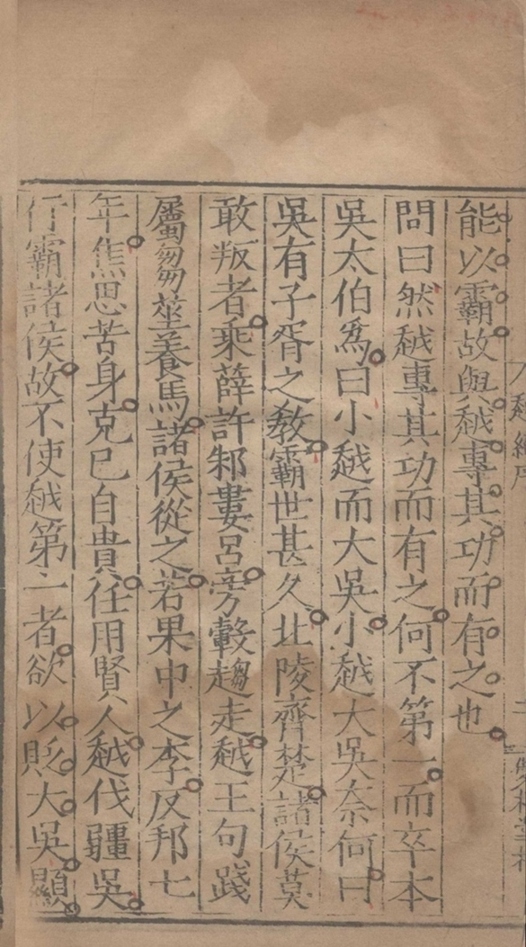 能以霸故與越專其功而有之也
問曰然越專其功而有之何不第一而卒本
吳太伯爲曰小越而大吳小越大吳奈何曰
吳有子胥之教霸世甚久北陵齊楚諸侯莫
敢叛者乘薛許邾婁呂旁轂趨走越王句踐
屬芻莝養馬諸侯從之若果中之李反邦七
年焦思苦身克巳自貴任用賢人越伐疆吳
行霸諸侯故不使越第二者欲以貶大吳顯